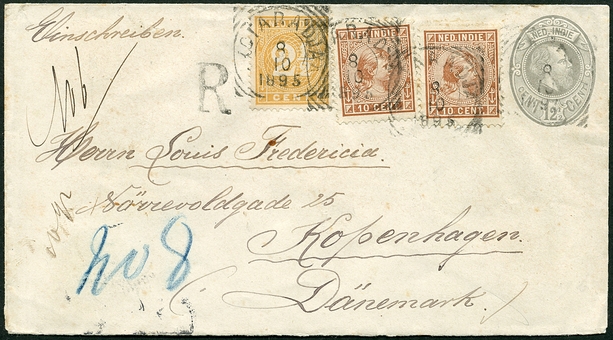 Einschreiben.
KOTARADJA
8
10
1895
3
CENT
NED.INDIE
10 CENT.
NED.INDIE
10 CENT.
8
10
NED. INDIE
12½ CENT
R
Herrn Louis Fredericia.
Nörrevoldgade 25
Kopenhagen.
Dänemark.
No 8